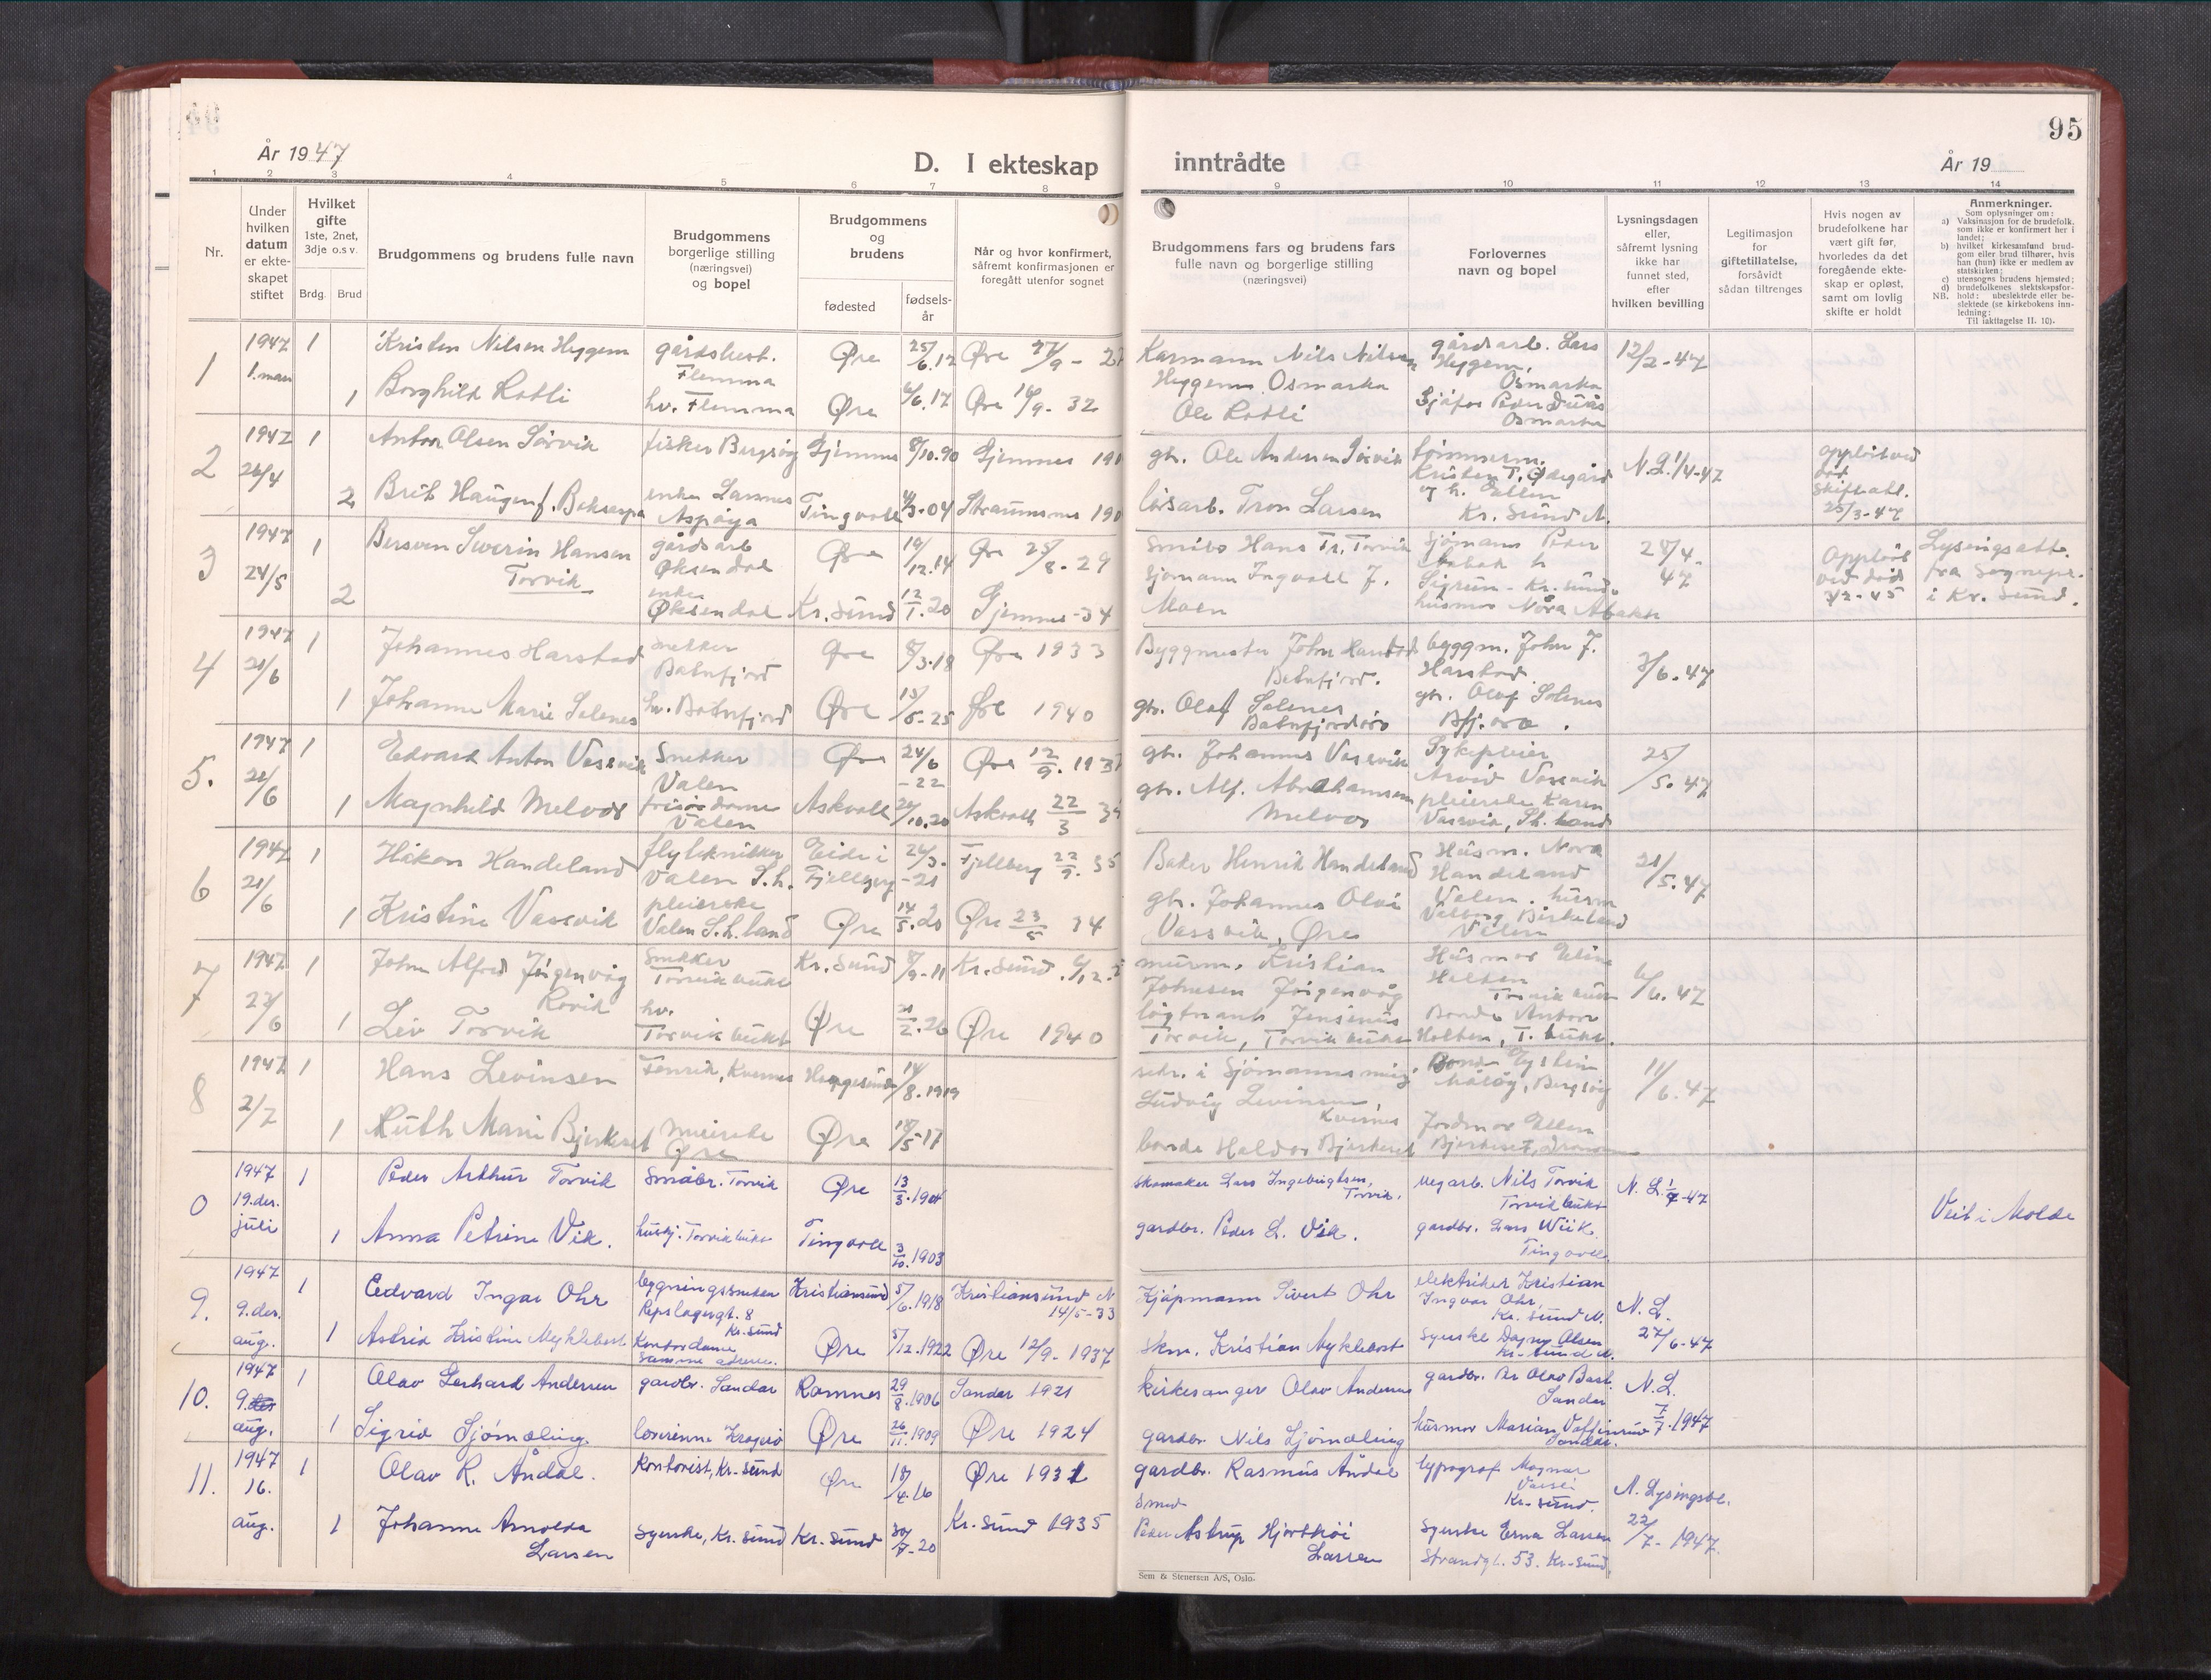 95
År 1947
D. I ekteskap inntrådte
År 19
1 2 3 4 5 6 7 8 9 10 11 12 13 14
Nr.
Under hvilken datum er ekteskapet stiftet
Hvilket gifte
1ste, 2net, 3dje o.s v.
Brdg. Brud
Brudgommens og brudens fulle navn
Brudgommens borgerlige stilling (næringsvei) og bopel
Brudgommens og brudens
fødested
fødsels-år
Når og hvor konfirmert, såfremt konfirmasjonen er foregått utenfor sognet
Brudgommens fars og brudens fars fulle navn og borgerlige stilling (næringsvei)
Forlovernes navn og bopel
Lysningsdagen eller, såfremt lysning ikke har funnet sted, efter hvilken bevilling
Legitimasjon for giftetillatelse, forsåvidt sådan tiltrenges
Hvis nogen av brudefolkene har vært gift før, hvorledes da det foregående ekteskap er opløst, samt om lovlig skifte er holdt
Anmerkninger.
Som oplysninger om:
a) Vaksinasjon for de brudefolk, som ikke er konfirmert her i landet;
b) hvilket kirkesamfund brudgom eller brud tilhører, hvis han (hun) ikke er medlem av statskirken;
c) utensogns brudens hjemsted;
d) brudefolkenes slektskapsforhold: ubeslektede eller beslektede (se kirkebokens innledning:
NB.
Til iakttagelse II. 10).
1 1947 1 Kristen Nilsen Heggem Flemma Øre 25/6.12 Øre 27/9 - 27 Nils Nilsen gårdsarb. Lars 12/2-47
Heggem Osmarka Heggem, Osmarka
1 Borghild Rotli hv. Flemma Øre Øre 32 Ole Rotli Osmarka
2 1947 1 Anton Olsen Sørvik fisker Bergsøy Gjemnes 8/10.90 Gjemnes gbr. Ole Andersen Sørvik tømmerm. N.L. 1/4-47
26/4 Kristen T. Ødegård
2 Brit Haugen f. enke Tingvoll Straumsnes løsarb. Tron Larsen og h. Ellen
Aspøya Kr. Sund N.
skifteatt.
25/3-47
3 1947 1 Bersven Severin Hansen gårdsarb Øre 19/12.14 Øre 25/8.29 Hans Tr. Torvik sjømann Peder 28/4.
24/5 Torvik Øksendal sjømann Ingvald J. 47
2 enke Øksendal Kr. Sund 12/1.20 Gjemnes -34 Moen Sigrun - Kr. sund.
husmor Nora
Oppløst ved død
Lysingsatt. fra Sognepr. i Kr. Sund.
4 1947 1 Johannes Harstad snekker Øre 8/3.18 Øre 1933 Byggmester John Harstad byggm. John J. 3/6.47
21/6 Batnfjord Batnfjord. Harstad.
1 Johanne Marie Solenes hv. Batnfjord Øre 25 Øre 1940 gbr. Olaf Solenes gbr. Olaf Solenes
Batnfjordsøra Bfj.øra.
5. 1947 1 Edvard Anton Vassvik Snekker Øre 24/6 Øre 12/9. gbr. Johannes Vassvik Sykepleier 25/
21/6 Valen -22 Arvid Vassvik 5.47
1 Magnhild Melvær frisørdame Askvoll 10.20 Askvoll 22/3 gbr. Alf. Abrahamsen pleierske Karen
Valen Melvær Vassvik, Sh. land
6 1947 1 Håkon Handeland flytekniker Eide i 26/3. Fjellberg 22/9. 35 Baker Henrik Handeland Husm. Nora 21/
21/6 Valen S.h. Fjellberg -21 Handeland 5.47
1 Kristine Vassvik pleierske Øre 14/5.20 Øre 23/5 34 gbr. Johannes Olai Valen. husm
Valen S.h.land Vassvik, Øre Valborg Birkeland
Valen
7 1947 1 John Alfred Jørgenvåg snekker Kr. Sund 9-11 Kr. Sund. murm. Kristian Husmor Eline 6/6.47
27/6 Rovik Torvikbukt Johnsen Jørgenvåg Holten
1 Liv Torvik hv. Øre 2.26 Øre 1940 Jensenius Bonde Anton
Torvikbukt Torvik, Torvikbukt Holten, T. bukt.
8 1947 1 Hans Levinsen Fenrik, Kvernes 14/8.1919 sekr. i Sjømannsmisj. Bonde Eystein 11/
2/7 Ludvig Levinsen, Måløy, Bergsøy 6.47
Kvernes
1 Ruth Marie Bjerkeset meierske Øre 18/5-17 bonde Haldor Bjerkeset Jordmor Ellen
Øre Bjerkeset,
0 1947 1 Peder Arthur Torvik Småbr. Torvik Øre 13/3.1904 skomaker Lars Ingebrigtsen, vegarb. Nils Torvik N. L. -47
19.des. Torvik. Torvikbukt
juli 1 Anna Petrine Vik. hushj. Torvikbukt Tingvoll 3/10.1903 gardbr. Peder L. Vik. gardbr. Lars Wiik.
Tingvoll.
Veit i Molde
9. 1947 1 Edvard Ingar Ohr bygningssnekker Kristiansund 5/6.1918 Kristiansund N Kjøpmann Sivert Ohr elektriker Kristian N. L.
9.des. Repslagergt. 8 14/5-33 Ingvar Ohr,
aug. Kr. sund Kr. sund N.
1 Astrid Kristine Myklebost Kontordame Øre 5/12.1922 Øre 12/9-1937 skm. Kristian Myklebost syerske Dagny Olsen 27/6-47
samme adresse. Kr. sund N.
10. 1947 1 Olav Gerhard Andersen gardbr. Sandar Ramnes 29/8.1906 Sandar 1921 kirkesanger Olav Andersen gardbr. N. L.
9. Sandar
aug. 1 Sigrid Sjømæling. lærerinne Kragerø Øre 26/11.1909 Øre 1924 gardbr. Nils Sjømæling husmor Marian 7/7.1947
Sandar.
11. 1947 1 Olav R. Åndal. kontorist, Kr. sund Øre 18/4.16 Øre 1931 gardbr. Rasmus Åndal typograf Magnar N. Lysingsbl.
16. Kr. sund.
aug. 1 Johanne Arnolda syerske, Kr. sund Kr. sund 30/7-20 Kr. sund 1935 smed syerske Erna Larsen 22/7-1947.
Larsen Peder Astrup Hjorthøi Strandgt. 53. Kr. sund.
Larsen
Sem & Stenersen A/S, Oslo.